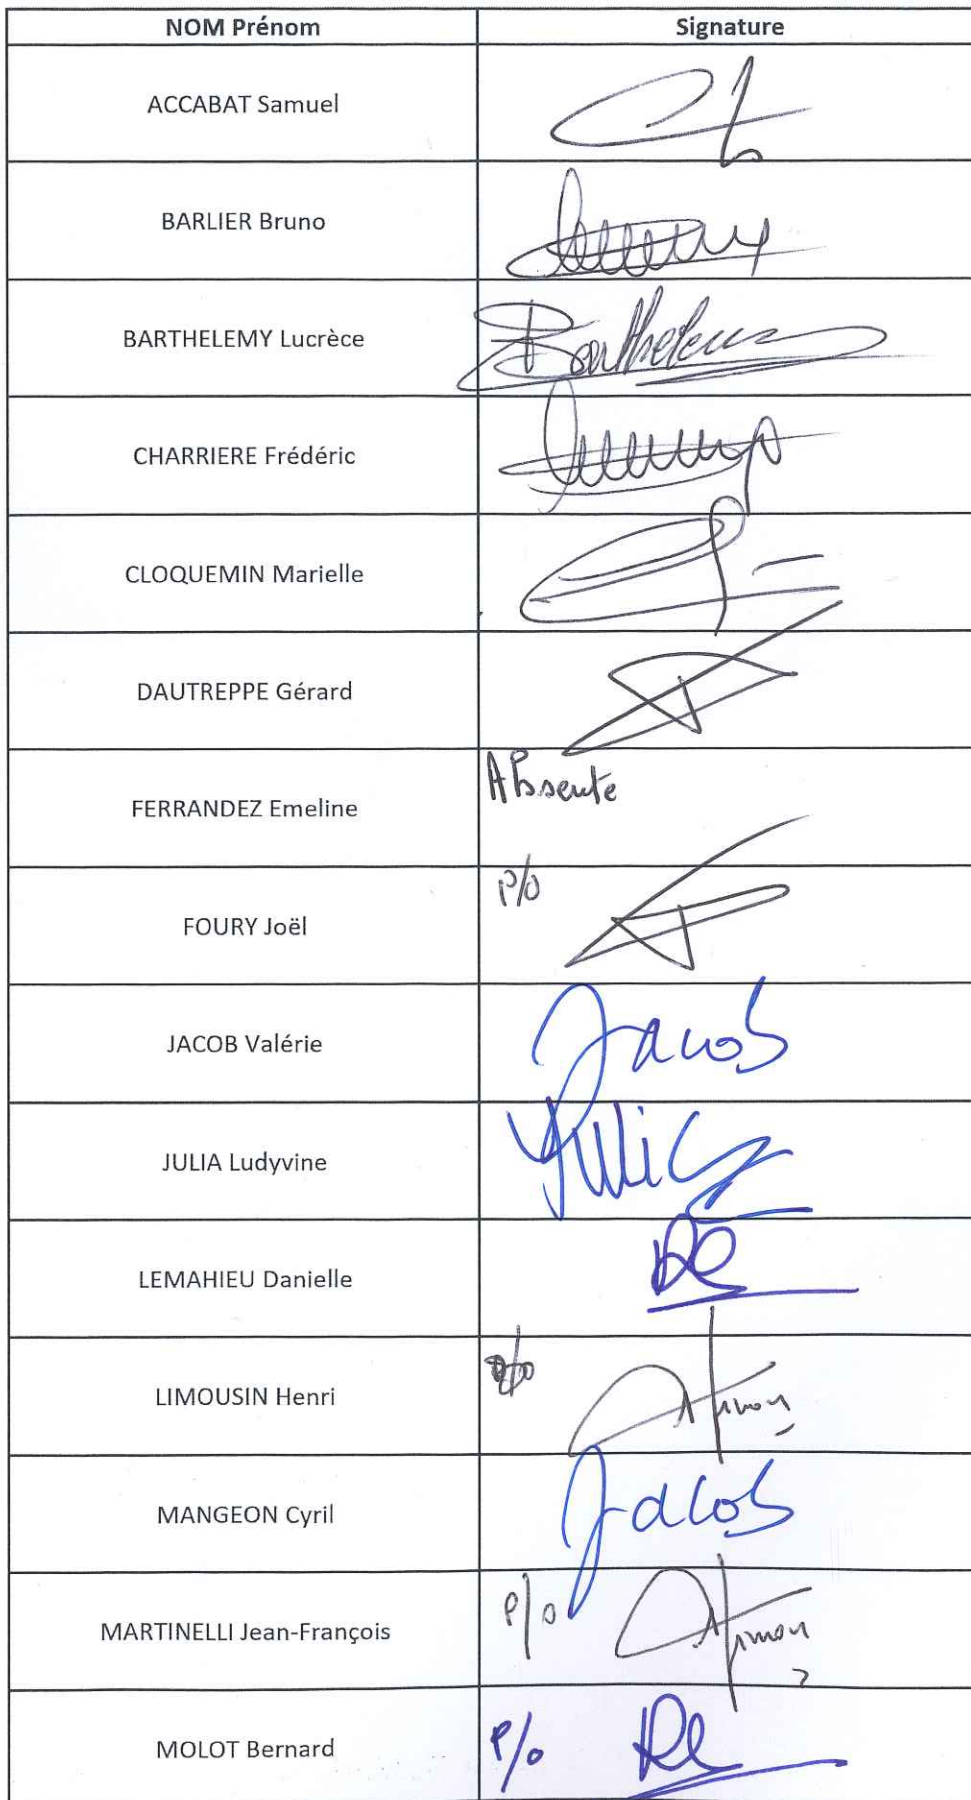 NOM Prénom Signature
ACCABAT Samuel
BARLIER Bruno
BARTHELEMY Lucrèce Barthelemy
CHARRIERE Frédéric
CLOQUEMIN Marielle
DAUTREPPE Gérard
FERRANDEZ Emeline Absente
FOURY Joël P/O
JACOB Valérie Jacob
JULIA Ludyvine Julia
LEMAHIEU Danielle
LIMOUSIN Henri P/o
MANGEON Cyril Jacob
MARTINELLI Jean-François P/o
MOLOT Bernard P/o